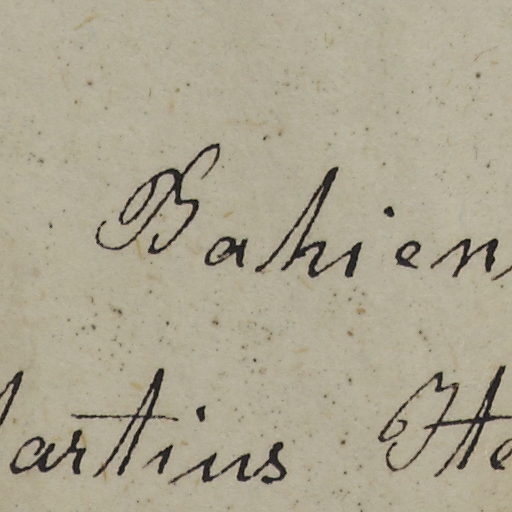 Bahien
artius Ite